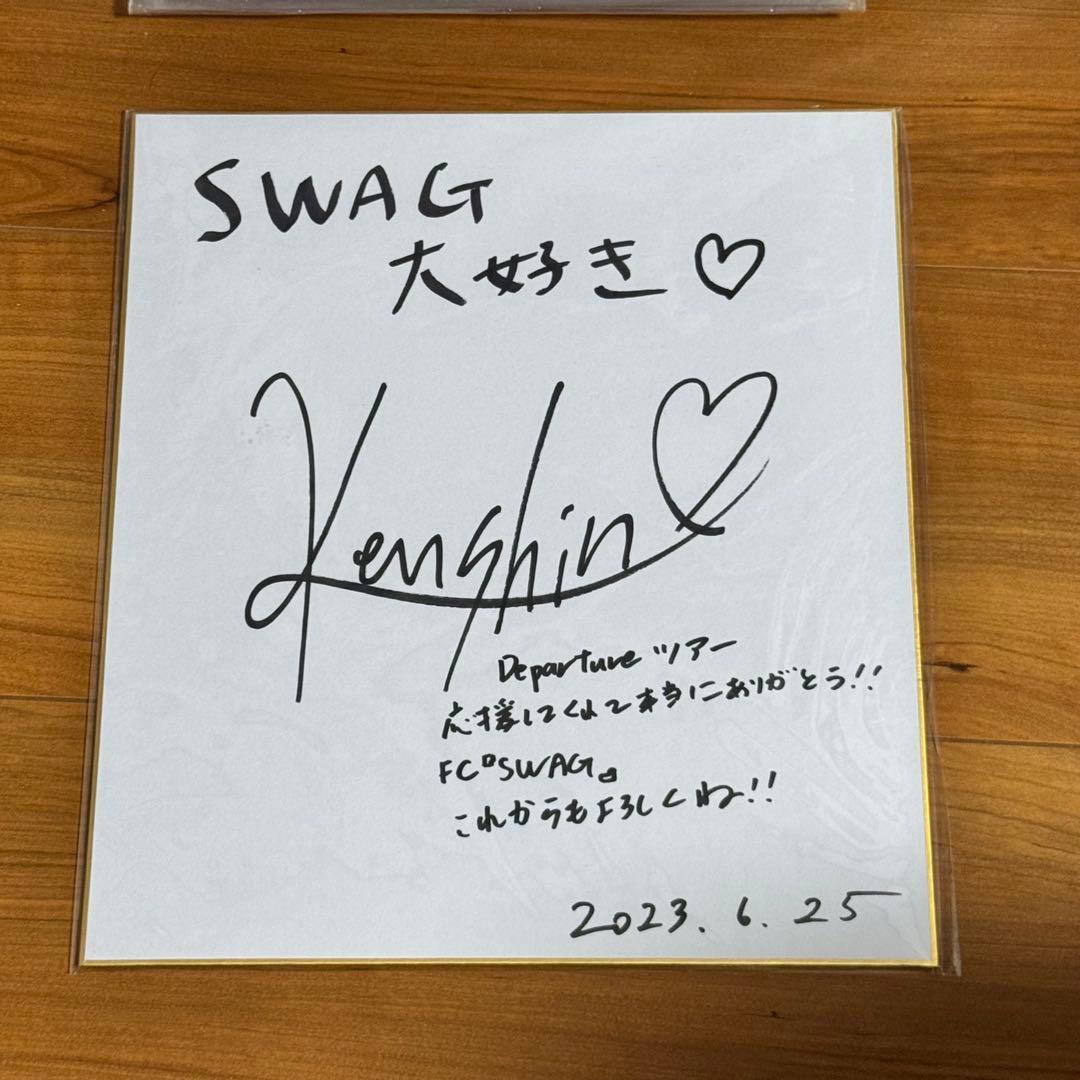 SWAG
大好き♡
Kenshin♡
Departure ツアー
応援してくれて本当にありがとう!!
FC『SWAG』
これからもよろしくね!!
2023.6.25